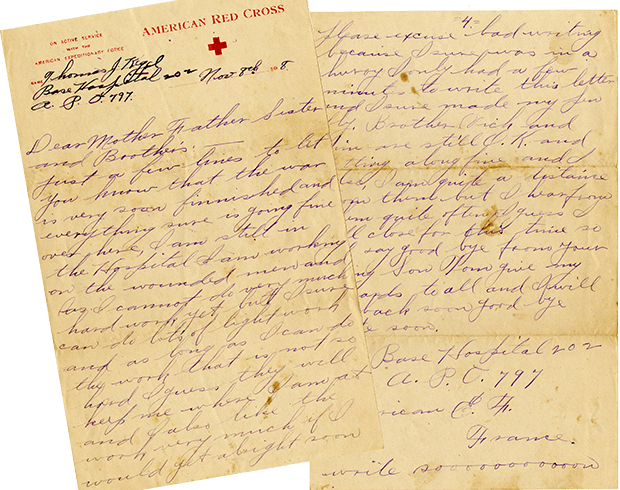 AMERICAN RED CROSS
ON ACTIVE SERVICE
WITH THE
AMERICAN EXPEDITIONARY FORCE
NAME Thomas J.
Base Hospital 202 Nov 8th 1918.
A. P. O. 797.
Dear Mother Father Sister
and Brothers:
Just a few lines to let
you know that the war
is very soon finnished and
everything sure is going fine
over here, I am still in
the Hospital I am working
on the wounded men and
as I cannot do very much
hard work yet, but I sure
can do lots of light work
and as long as I can do
the work that is not so
hard I guess they will
keep me where I am at
and I also like the
work very much if I
would get alright soon
"4"
Please excuse bad writing
because I sure was in a
hurry I only had a few
minutes to write this letter
and I sure made my pen
Brother Rich and
are still O.K. and
along fine and I
I am quite a distance
from them but I hear from
them quite often I guess I
close for this time so
say good bye from your
Son Tom give my
to all and I will
back soon good bye
soon.
Base Hospital 202
A. P. O. 797
E. F.
France.
write sooooooooooon